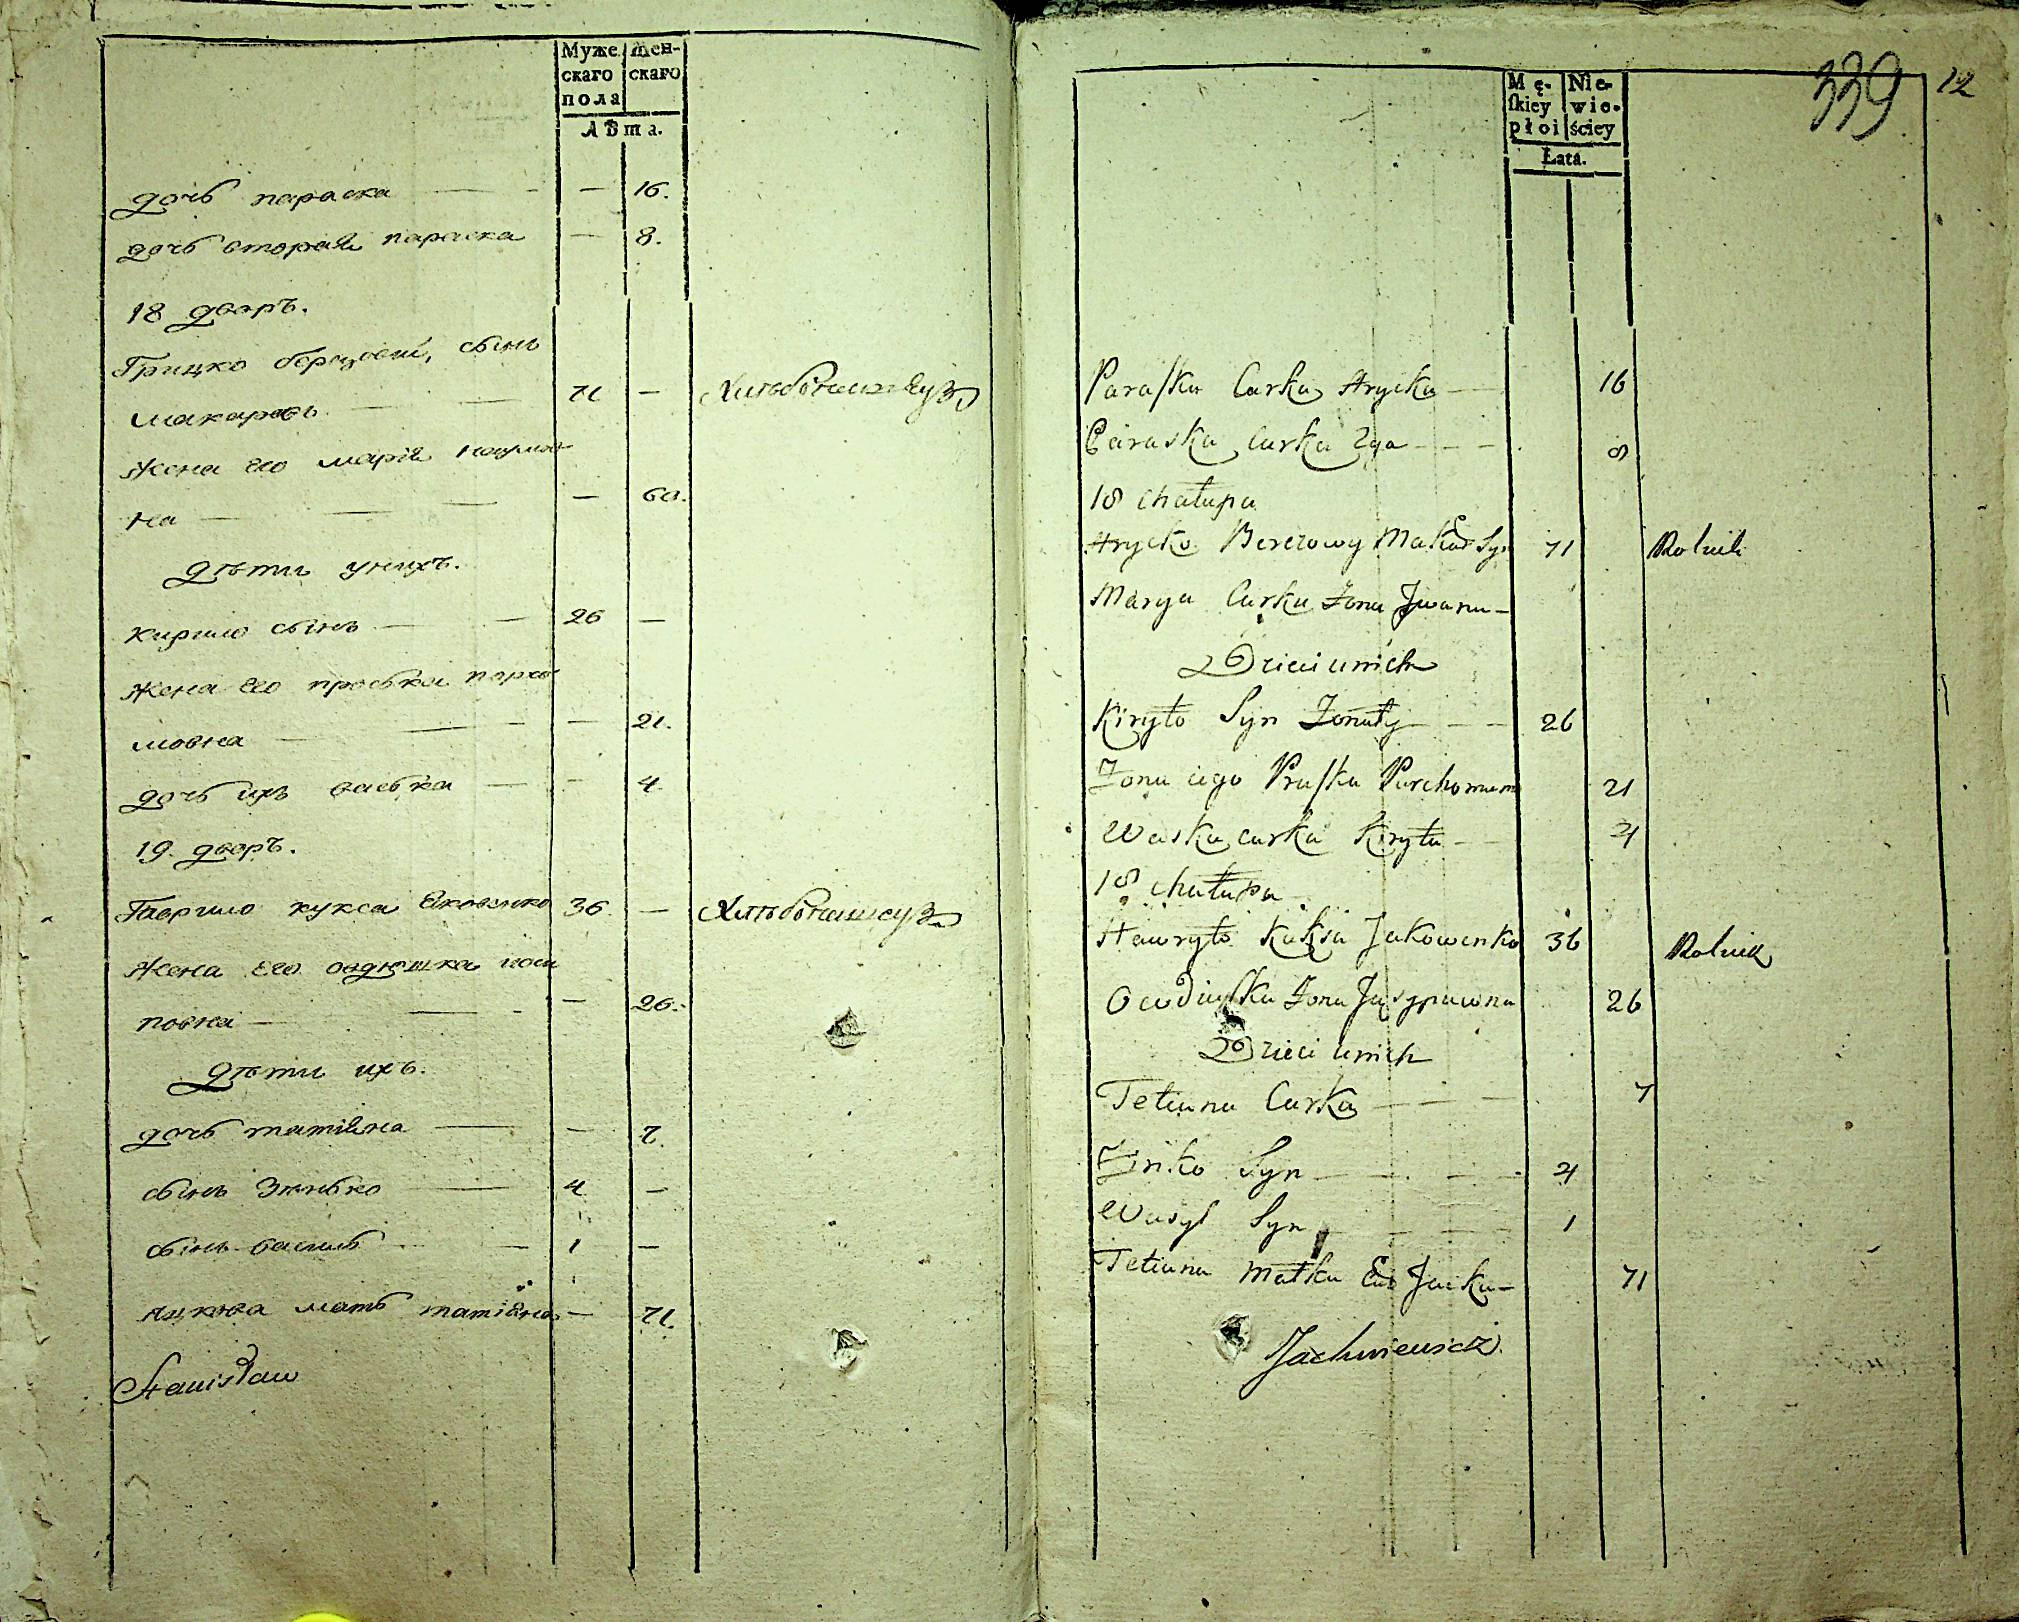 Муже- Жен-
скаго скаго
пола
Лѣта.
дочь параска — — 16.
дочь вторая параска — 8.
18 дворъ.
Грицко березовый, сынъ
макаровъ — — 71 — Хлѣбопашецъ
Жена его марія наумов
на — — — — 60.
дѣти унихъ.
кирило сынъ — — 26 —
Жена его проська пархо
мовна — — — 21.
дочь ихъ васька — — 4.
19. дворъ.
Гаврило кукса Яковенко 36. — Хлѣбопашецъ
Жена его овдюшка
повна — — — 26.
дѣти ихъ.
дочь татіяна — — 7.
сынъ Зѣнько — 4 —
сынъ василь — 1 —
яцкова мать татіяна — 71.
Stanisław
339 12
Mę- Nie-
ſkiey wie-
płoi ściey
Łata.
Paraſka Curka Hrycka — 16
Paraska Curka 2ga — — 8
18 chałupa
Hrycko Berezowy Makar Syn 71 Rolnik
Marya Curka Żona Jwana —
Dzieci unich
Kiryło Syn Żonaty — — 26
Żona iego Praſka Parchomowna 21
Waska curka Kiryła — 4
18 chałupa
Hawryło Kuksa Jakowenko 36 Rolnik
Owdiuſka Żona Jusypawna 26
Dzieci unich
Tetiana Curka — — — 7
Żinko Syn — — — 4
Wasyl Syn — — 1
Tetiana Matka Jacka — 71
Jachniewicz